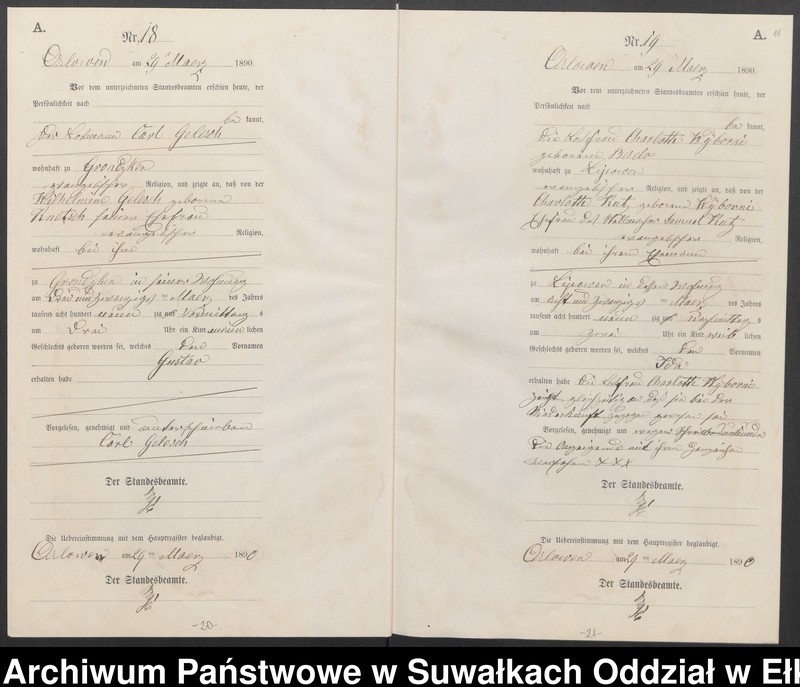 A.
Nr. 18
Orlowen am 29 ten Maerz 1890.
Vor dem unterzeichneten Standesbeamten erschien heute, der
Persönlichkeit nach
be kannt,
der Losmann Carl Gelesch
wohnhaft zu Grondzken
evangelischer Religion, und zeigte an, daß von der
Wilhelmine Gelesch geborenen
seiner Ehefrau
evangelischer Religion,
wohnhaft bei ihm
zu Grondzken in seiner Wohnung
am drei und zwanzigsten Maerz des Jahres
tausend acht hundert neunzig Vormittags
um Drei Uhr ein Kind männlichen
Geschlechts geboren worden sei, welches den Vornamen
Gustav
erhalten habe
Vorgelesen, genehmigt und unterschrieben
Carl Gelesch
Der Standesbeamte.
Die Uebereinstimmung mit dem Hauptregister beglaubigt.
Orlowen am 29 ten Maerz 1890
Der Standesbeamte.
-20-
A.
11
Nr. 19
Orlowen am 29 Maerz 1890.
Vor dem unterzeichneten Standesbeamten erschien heute, der
Persönlichkeit nach
be kannt,
die Losfrau Charlotte Kÿborni
geborene
wohnhaft zu Lipowen
evangelischer Religion, und zeigte an, daß von der
Charlotte Kutz, geborene Kÿborni
Ehefrau des Samuel Kutz
evangelischer Religion,
wohnhaft bei ihrem Ehemann
zu Lipowen in dessen Wohnung
am zwanzigsten Maerz des Jahres
tausend acht hundert neunzig Nachmittags
um zwei Uhr ein Kind weiblichen
Geschlechts geboren worden sei, welches den Vornamen
Ida
erhalten habe Die Losfrau Charlotte Kÿborni
zeigt gleichzeitig an daß sie bei der
Niederkunft zugegen gewesen sei
Vorgelesen, genehmigt und wegen
die Anzeigende mit ihrem Handzeichen
versehen XXX
Der Standesbeamte.
Die Uebereinstimmung mit dem Hauptregister beglaubigt.
Orlowen am 29 ten Maerz 1890
Der Standesbeamte.
-21-
Archiwum Państwowe w Suwałkach Oddział w Ełk